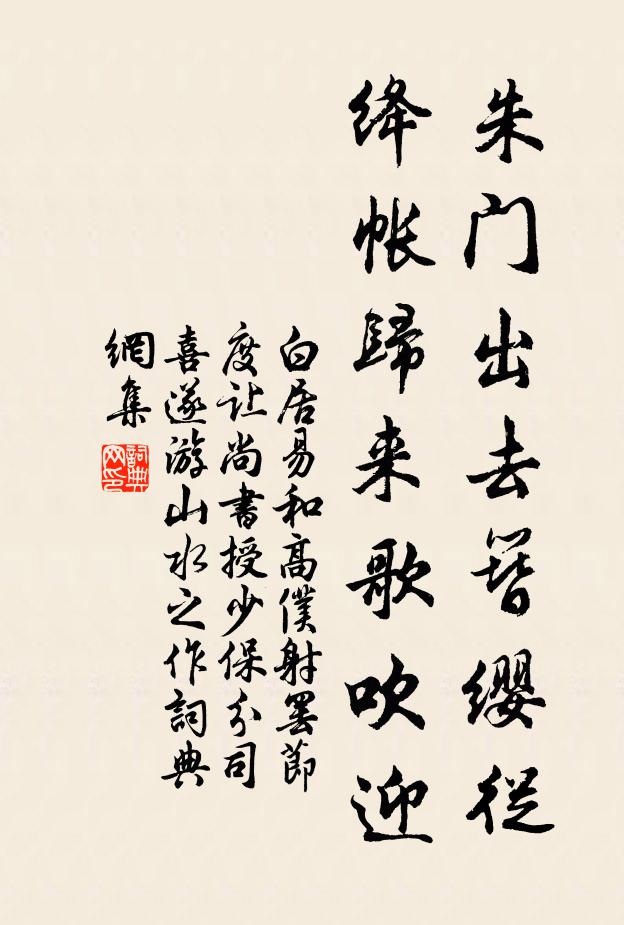 朱门出去簪缨從
绛帐歸来歌吹迎
白居易和高僕射罢節
度让尚書授少保分司
喜遂游山水之作詞典
網集
詞典
网印